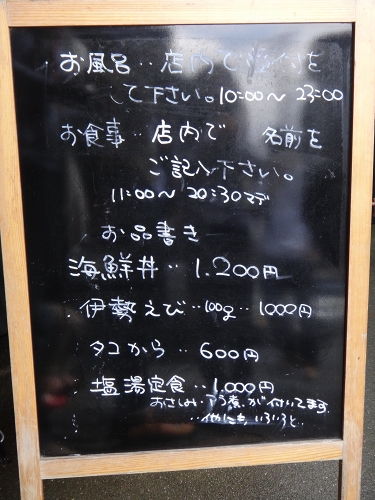 お風呂‥店内で受付を
して下さい。10:00〜23:00
お食事‥店内で 名前を
ご記入下さい。
11:00〜20:30マデ
お品書き
海鮮丼‥1.200円
伊勢えび‥100g‥1000円
タコから‥600円
塩湯定食‥1.000円
おさしみ、アラ煮、が付いてます。
他にも、いろいろと‥